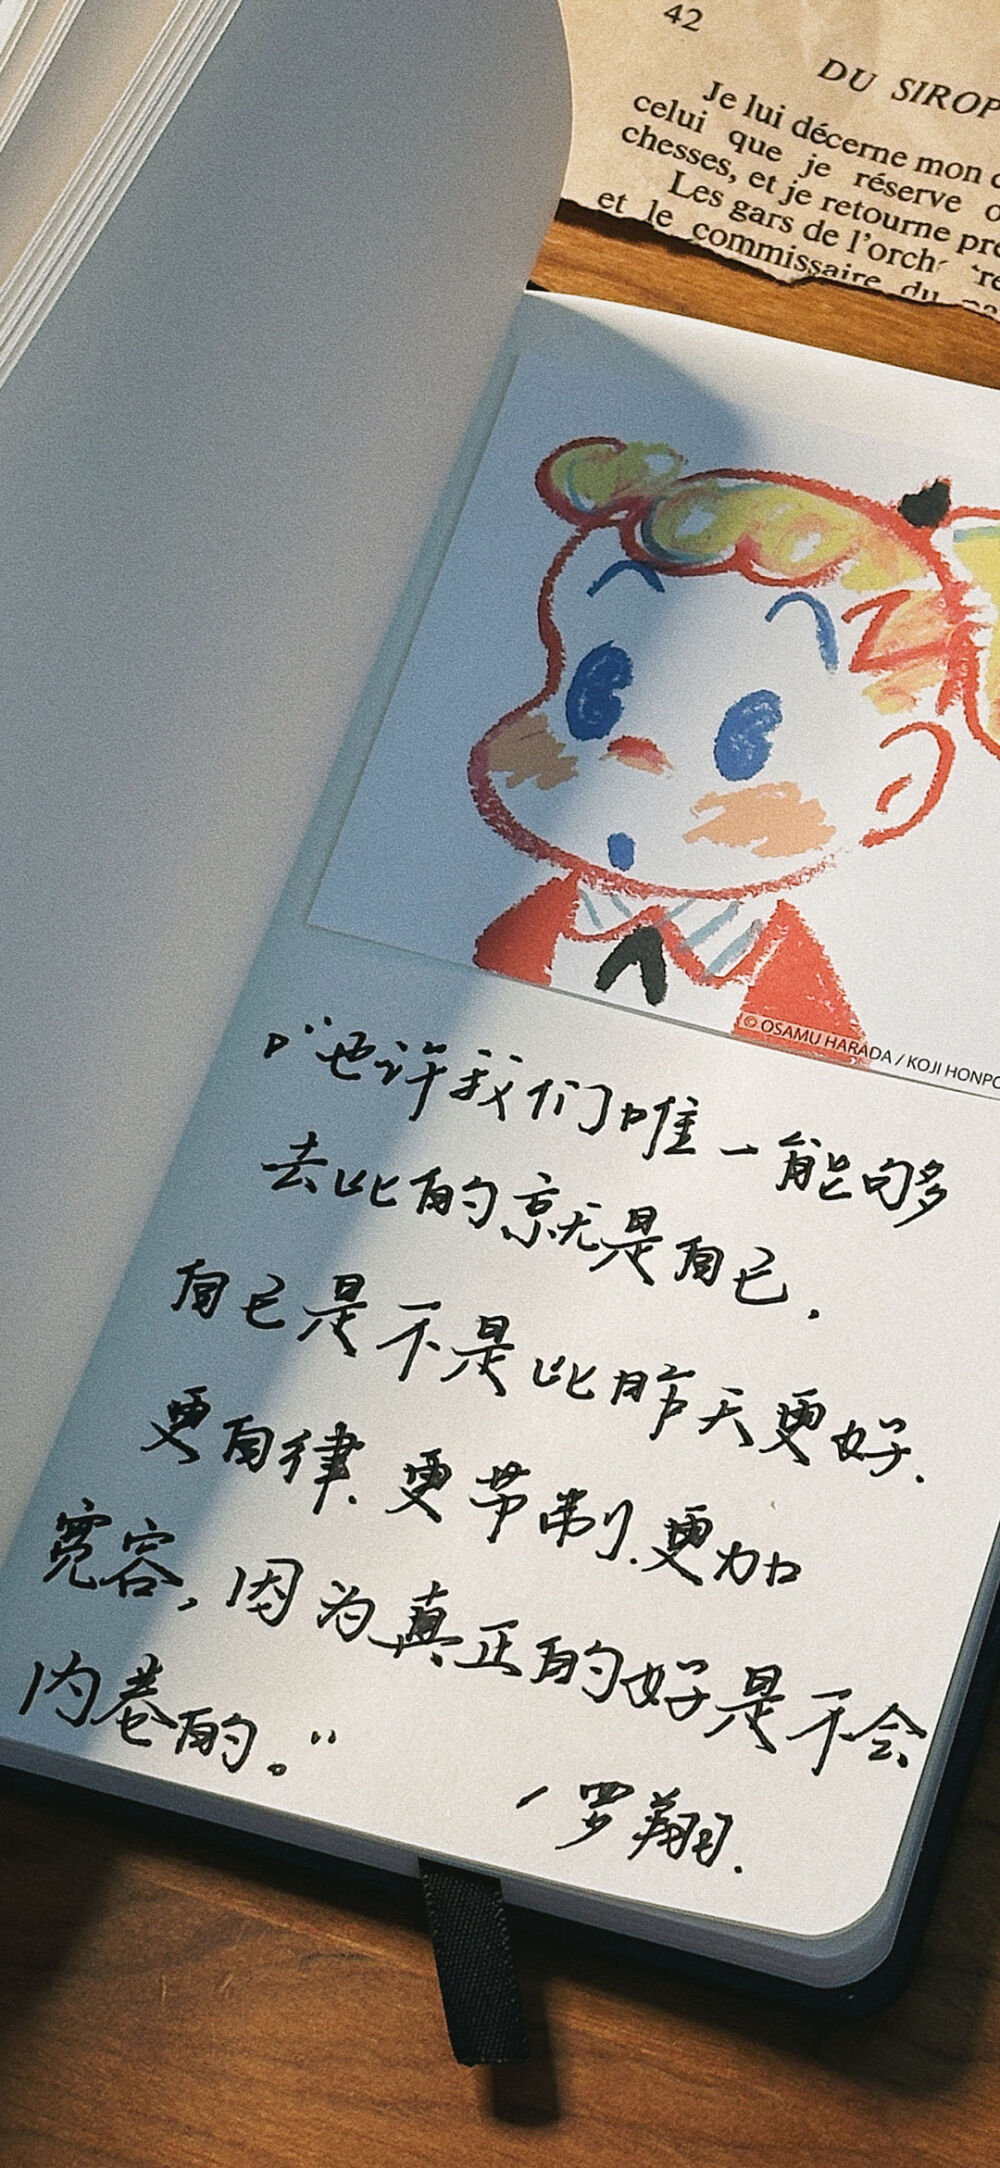 42
DU SIROP
Je lui décerne mon
celui que je réserve
chesses, et je retourne
Les gars de l'orch
et le commissaire du
© OSAMU HARADA / KOJI HONPO
“也许我们唯一能够
去比的就是自己,
自己是不是比昨天更好.
更自律.更节制.更加
宽容,因为真正的好是不会
内卷的。”
-罗翔.